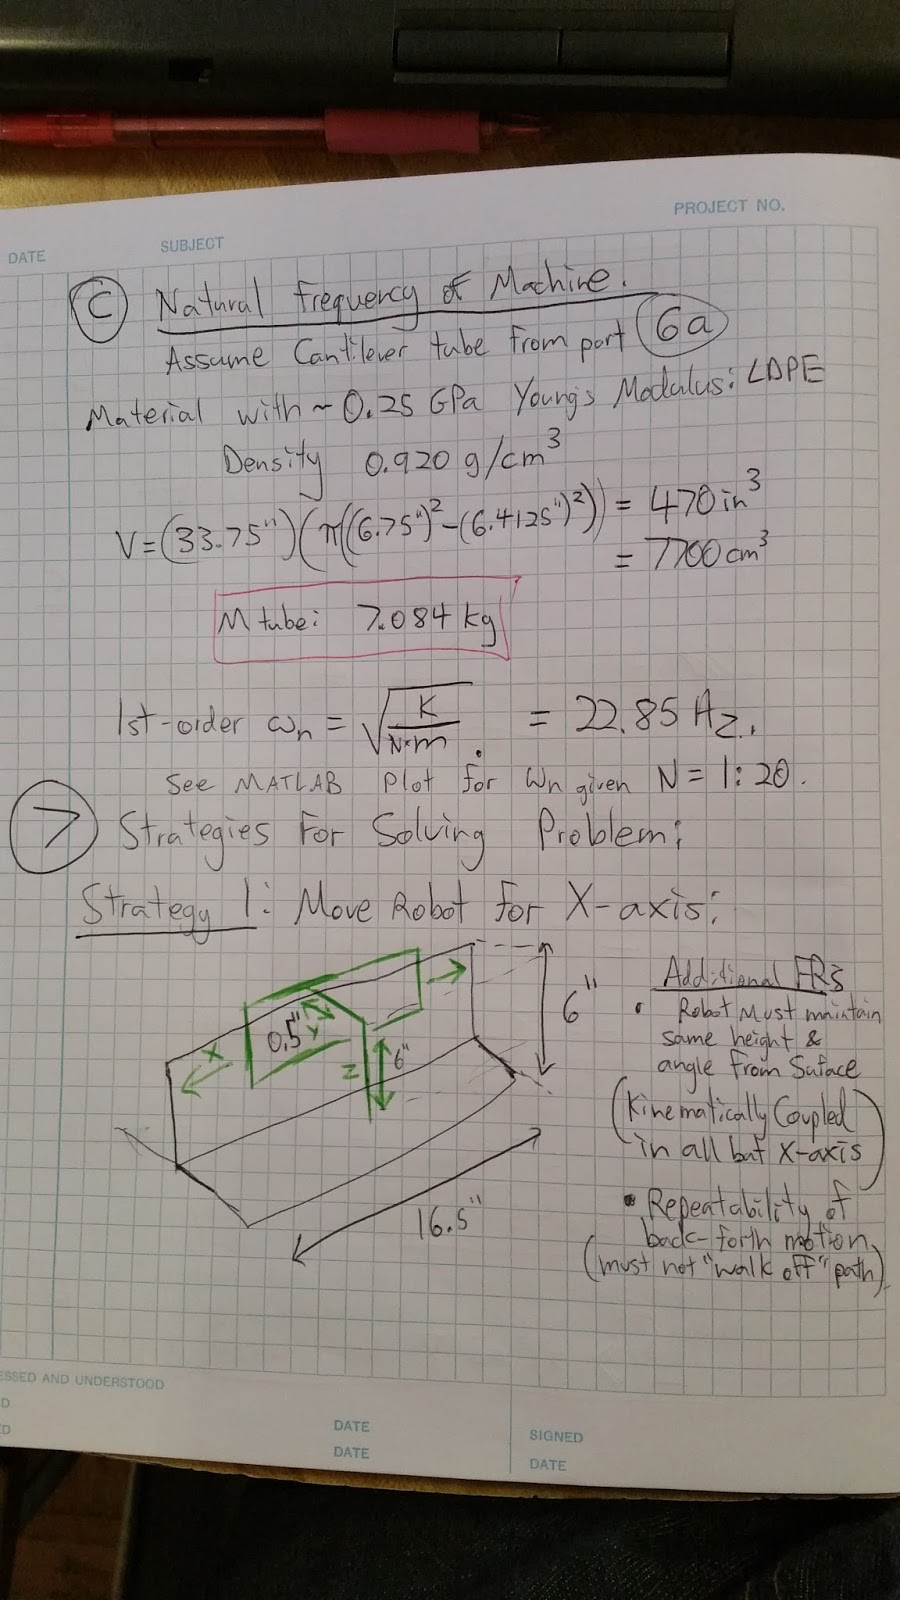 PROJECT NO.
DATE
SUBJECT
C Natural Frequency of Machine.
Assume Cantilever tube from part 6a
Material with ~ 0.25 GPa Young's Modulus: LDPE
Density 0.920 g/cm³
V=(33.75")(π((6.75")²-(6.4125")²)) = 470in³
= 7700cm³
M tube: 7.084 kg
1st-order ωn = √(K/N·m). = 22.85 Hz.
See MATLAB Plot for ωn given N=1:20.
7 Strategies For Solving Problem:
Strategy 1: Move Robot for X-axis:
Additional FRs
• Robot Must maintain
same height &
angle from Suface
(Kinematically Coupled
in all but X-axis)
• Repeatability of
back-forth motion
(must not "walk off" path)
6"
0.5"
Y
X
Z
6"
16.5"
ESSED AND UNDERSTOOD
D
ED
DATE
DATE
SIGNED
DATE